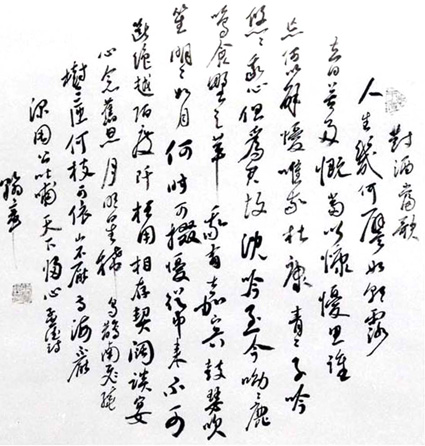 對酒當歌
人生幾何譬如朝露
去日苦多慨當以慷憂思難
忘何以解憂唯有杜康青々子衿
悠々我心但為君故沈吟至今呦々鹿
鳴食野之苹我有嘉賓鼓瑟吹
笙明々如月何時可掇憂從中來不可
斷絕越陌度阡枉用相存契闊談宴
心念舊恩月明星稀烏鵲南飛繞
樹三匝何枝可依山不厭高海
深周公吐哺天下歸心